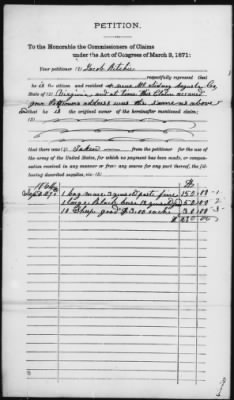 PETITION.
To the Honorable the Commissioners of Claims
under the Act of Congress of March 3, 1871:
Your petitioner (1) Jacob Ritchie
respectfully represent that
he is the citizen and resident of near Mt. Sidney Augusta Co
State of Virginia, and at time this Claim accrued
your Petitioners address was the same as above
and he is the original owner of the hereinafter mentioned claim;
(2)
that there was (4) Taken from your petitioner for the use of
the army of the United States, for which no payment has been made, or compensation
received in any manner or from any manner or any source, the following
described supplies, viz: (5)
1864 $
1 bay mare 3 years old 150 00 1
1 large Black horse 150 00 2
10 Sheep good @ $3.00 each 30 00 3